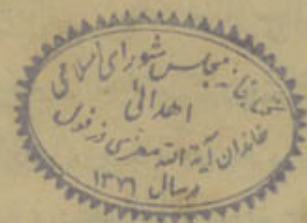 کتابخانه مجلس شورای اسلامی
اهدائی
خاندان آیة الله معزی دزفولی
درسال ۱۳۷۶